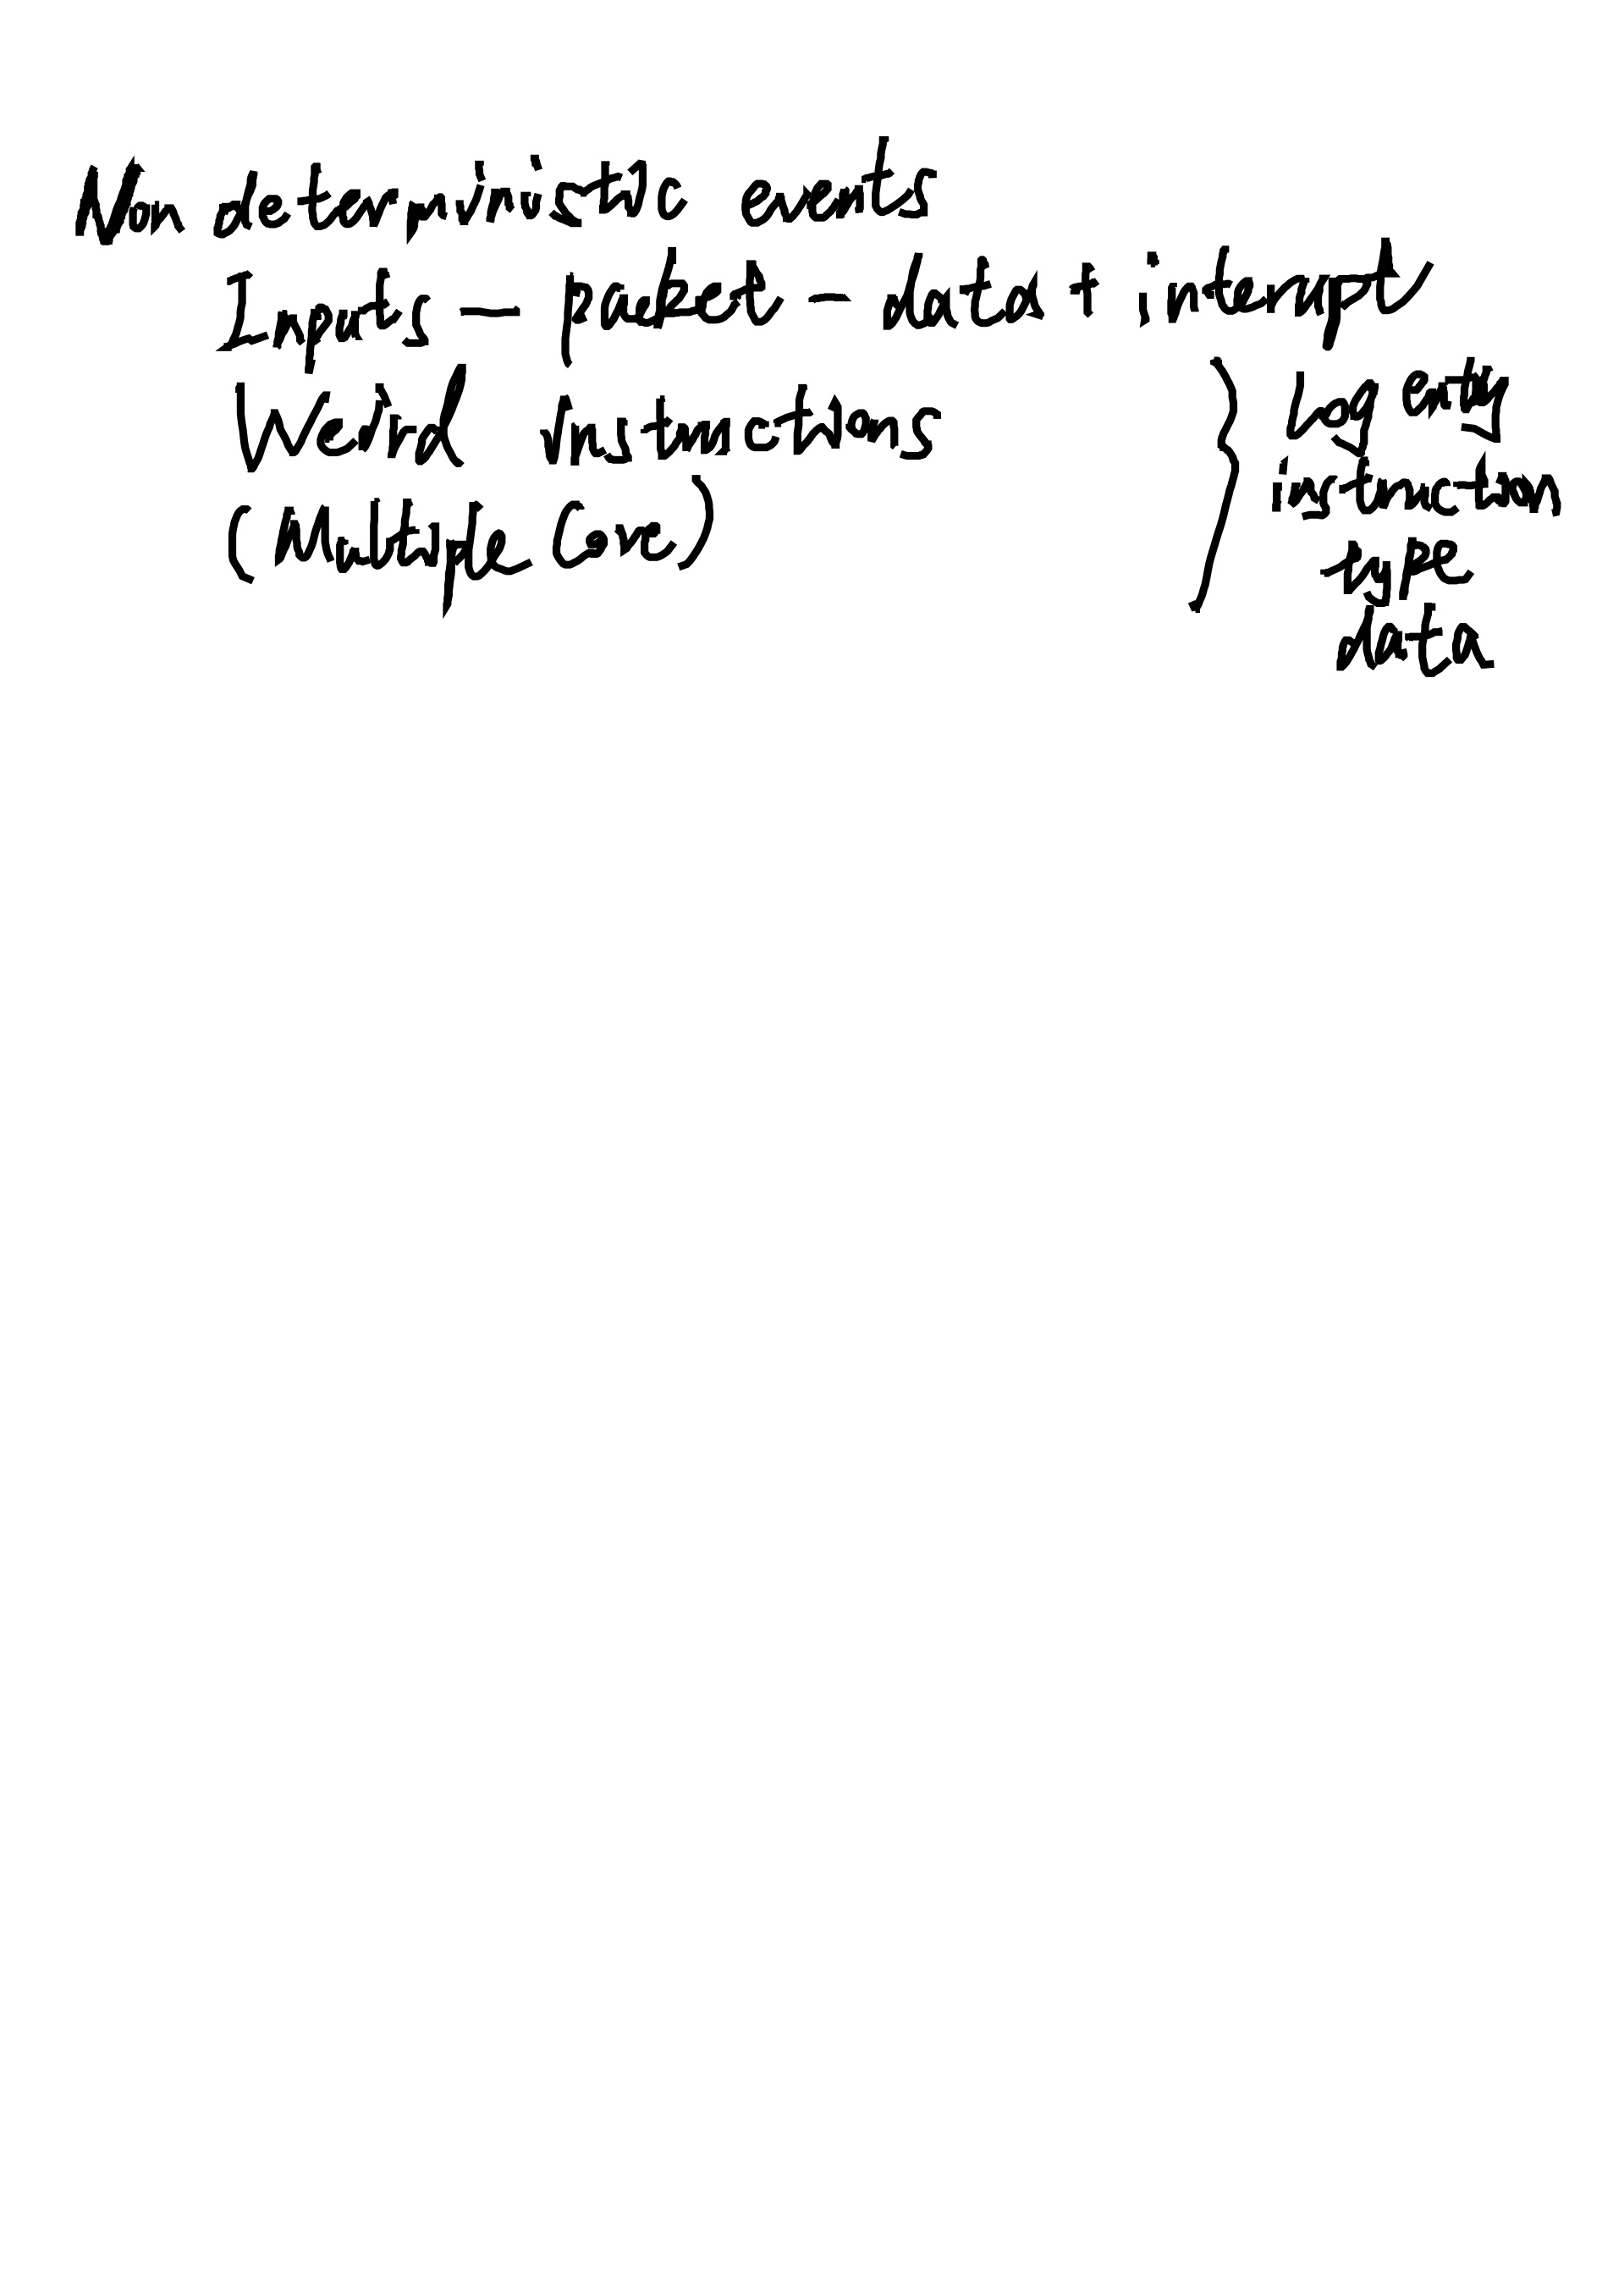 Non deterministic events
Inputs — packet – data + interrupt
Weird instructions
(Multiple Core)
Log entry
instruction
type
data